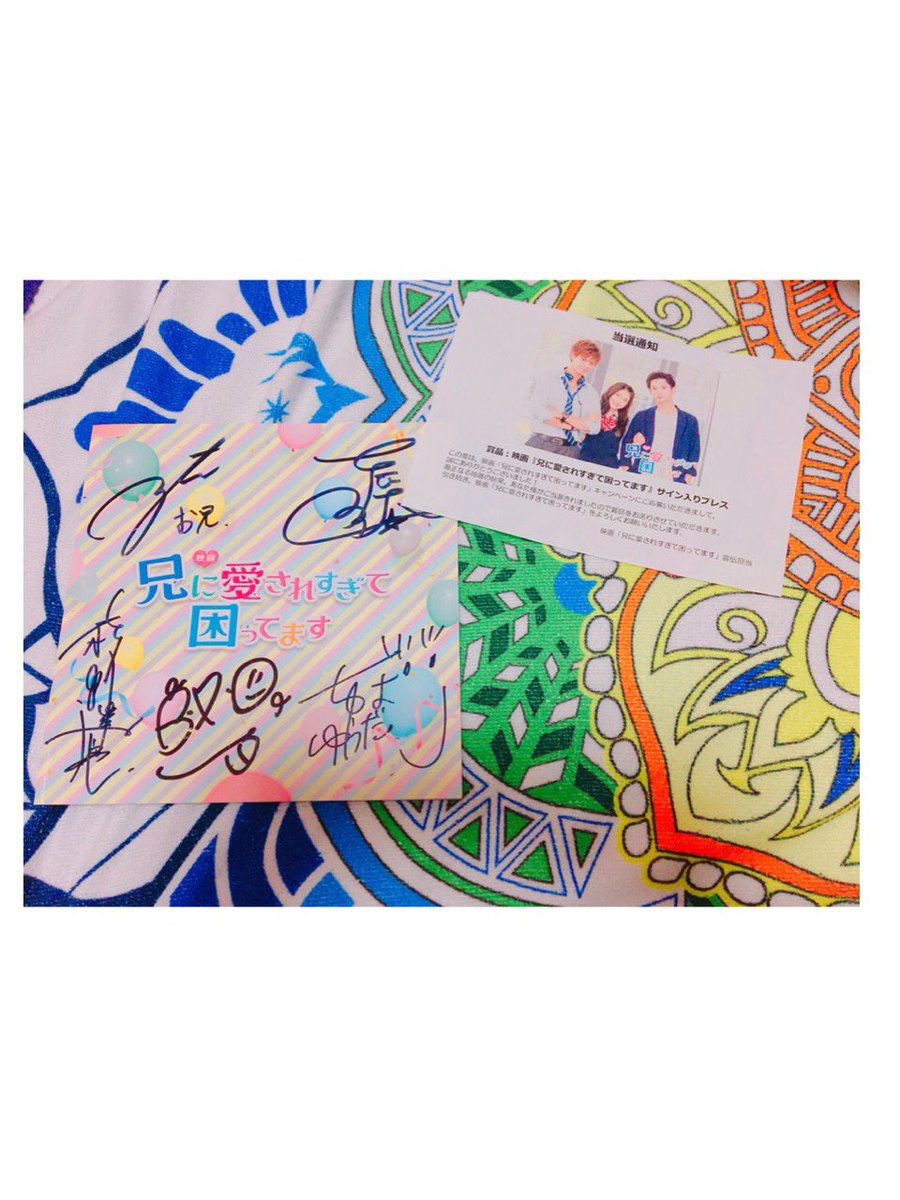 お兄.
映画
兄に愛されすぎて
困ってます
当選通知
兄に愛されすぎて
困
賞品：映画『兄に愛されすぎて困ってます』サイン入りプレス
この度は、映画「兄に愛されすぎて困ってます」キャンペーンにご応募いただきまして、
誠にありがとうございました！
厳正なる抽選の結果、あなた様がご当選されましたので賞品をお送りさせていただきます。
引き続き、映画「兄に愛されすぎて困ってます」をよろしくお願いいたします。
映画「兄に愛されすぎて困ってます」宣伝担当